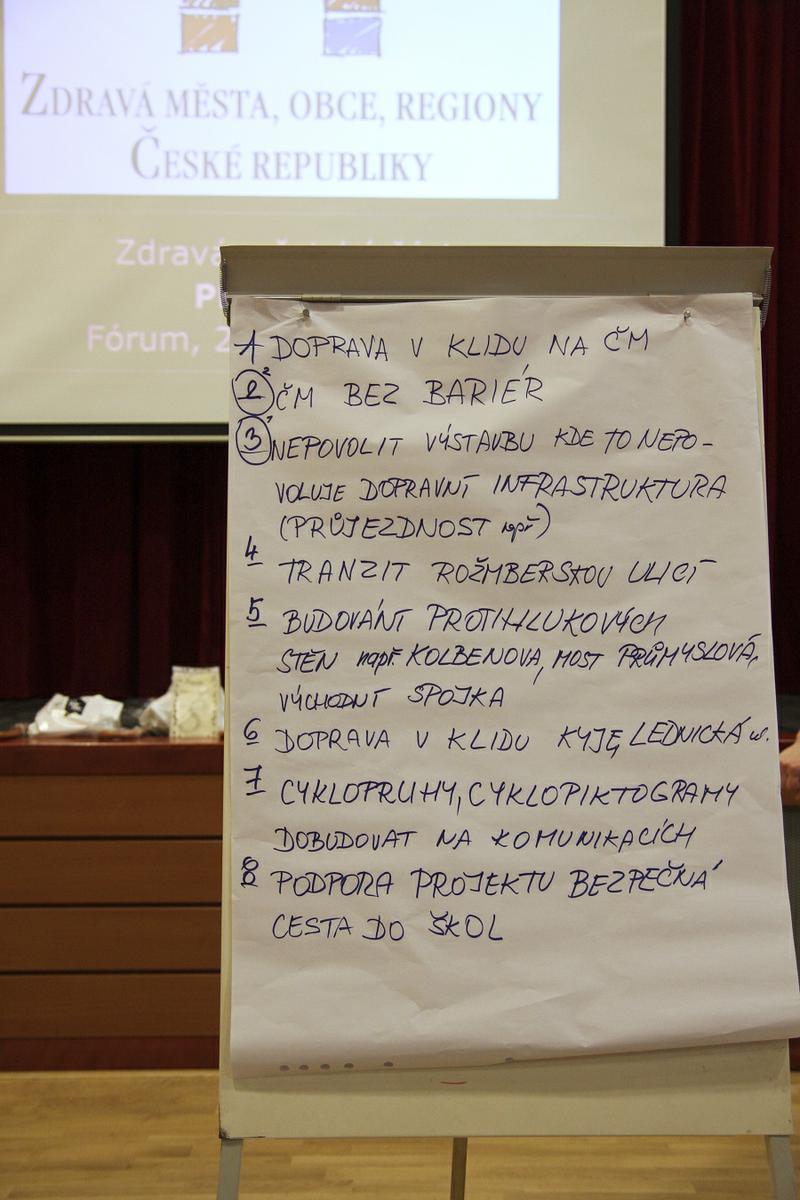 ZDRAVÁ MĚSTA, OBCE, REGIONY
ČESKÉ REPUBLIKY
Zdravá
P
Fórum, 2
1 DOPRAVA V KLIDU NA ČM
2 2 ČM BEZ BARIÉR
3 1 NEPOVOLIT VÝSTAVBU KDE TO NEPO-
VOLUJE DOPRAVNÍ INFRASTRUKTURA
(PRŮJEZDNOST např)
4 TRANZIT ROŽMBERSKOU ULICÍ
5 BUDOVÁNÍ PROTIHLUKOVÝCH
STĚN např. KOLBENOVA, MOST PRŮMYSLOVÁ,
VÝCHODNÍ SPOJKA
6 DOPRAVA V KLIDU KYJE, LEDNICKÁ ul.
7 CYKLOPRUHY, CYKLOPIKTOGRAMY
DOBUDOVAT NA KOMUNIKACÍCH
8 PODPORA PROJEKTU BEZPEČNÁ
CESTA DO ŠKOL